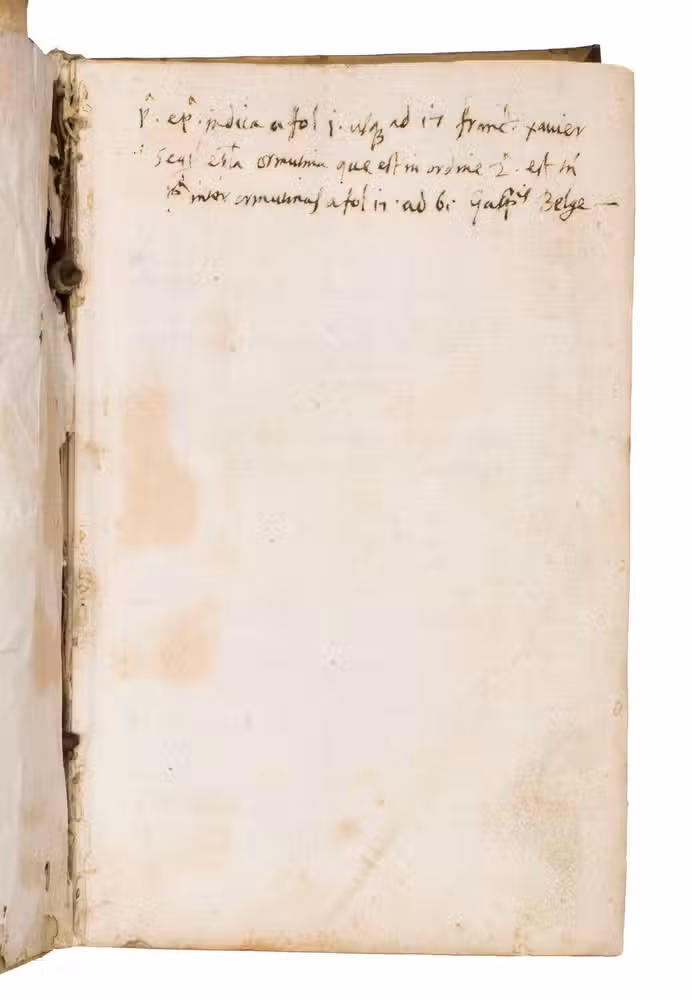 pª. epª. indica a fol j. usq; ad 17 franc. xavier
Seqr. esta ormutina que est in ordine 2ª. est in
pª inter ormutinas a fol 17. ad 61 Gasparis Belge —